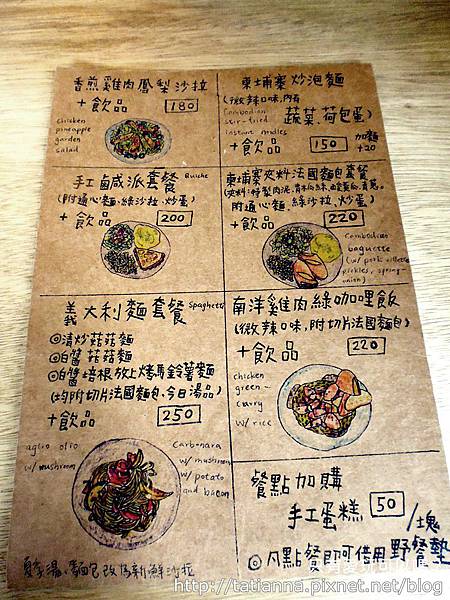 香煎雞肉鳳梨沙拉
+飲品 180
chicken
pineapple
garden
salad
柬埔寨炒泡麵
(微辣口味,內有
蔬菜.荷包蛋)
Cambodian
stir-fried
instant noodles
+飲品 150 加麵
+20
手工鹹派套餐 Quiche
(附通心麵.綠沙拉.炒蛋)
+飲品 200
柬埔寨夾料法國麵包套餐
附通心麵.綠沙拉.炒蛋)
+飲品 220
Cambodian
baguette
(w/ pork rillette
pickles, spring-
onion)
義大利麵套餐 Spaghetti
◎清炒菇菇麵
◎白醬菇菇麵
◎白醬培根放上烤馬鈴薯麵
(均附切片法國麵包、今日湯品)
+飲品 250
aglio olio
w/ mushroom
Carbonara
w/ mushroom
w/ potato
and bacon
南洋雞肉綠咖哩飯
(微辣口味,附切片法國麵包)
+飲品 220
chicken
green-
curry
w/ rice
餐點加購
手工蛋糕 50 /塊
◎凡點餐即可借用野餐墊
夏季湯、麵包改為新鮮沙拉
http://tatianna.pixnet.net/blog